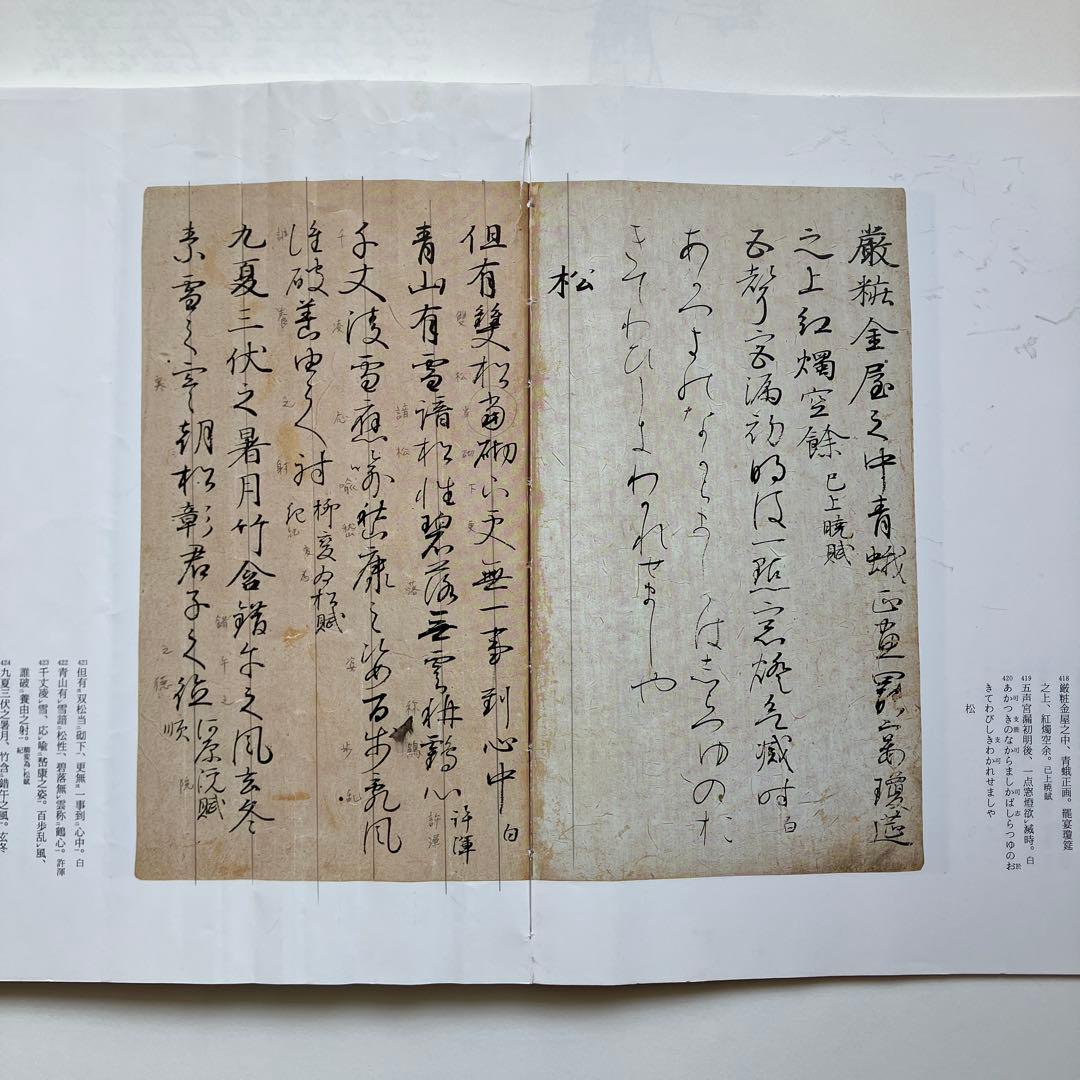 厳粧金屋之中青蛾正畫罷宴瓊筵
之上紅燭空餘 已上暁賦
五聲宮漏初明後一點窓燈欲滅時 白
あかつきのなからましかはしらつゆのお
きてわひしきわかれせましや
松
但有雙松當砌下更無一事到心中 白
青山有雪諳松性碧落無雲称鶴心 許渾
千丈凌雪應喩嵆康之姿百步亂風
誰破養由之射 柳変為松賦 紀
九夏三伏之暑月竹含錯午之風玄冬
素雪之寒朝松彰君子之徳 源沅賦 順
418 厳粧金屋之中、青蛾正画。罷宴瓊筵
之上、紅燭空余。已上暁賦
419 五声宮漏初明後、一点窓燈欲レ滅時。白
420 あかつきのなからましかばしらつゆのお
きてわびしきわかれせましや
松
421 但有二双松当一砌下、更無三一事到二心中一。白
422 青山有レ雪諳二松性一、碧落無レ雲称二鶴心一。許渾
423 千丈凌レ雪、応レ喩二嵆康之姿一。百歩乱レ風、
誰破二養由之射一。柳変為松賦 紀
424 九夏三伏之暑月、竹含二錯午之風一。玄冬